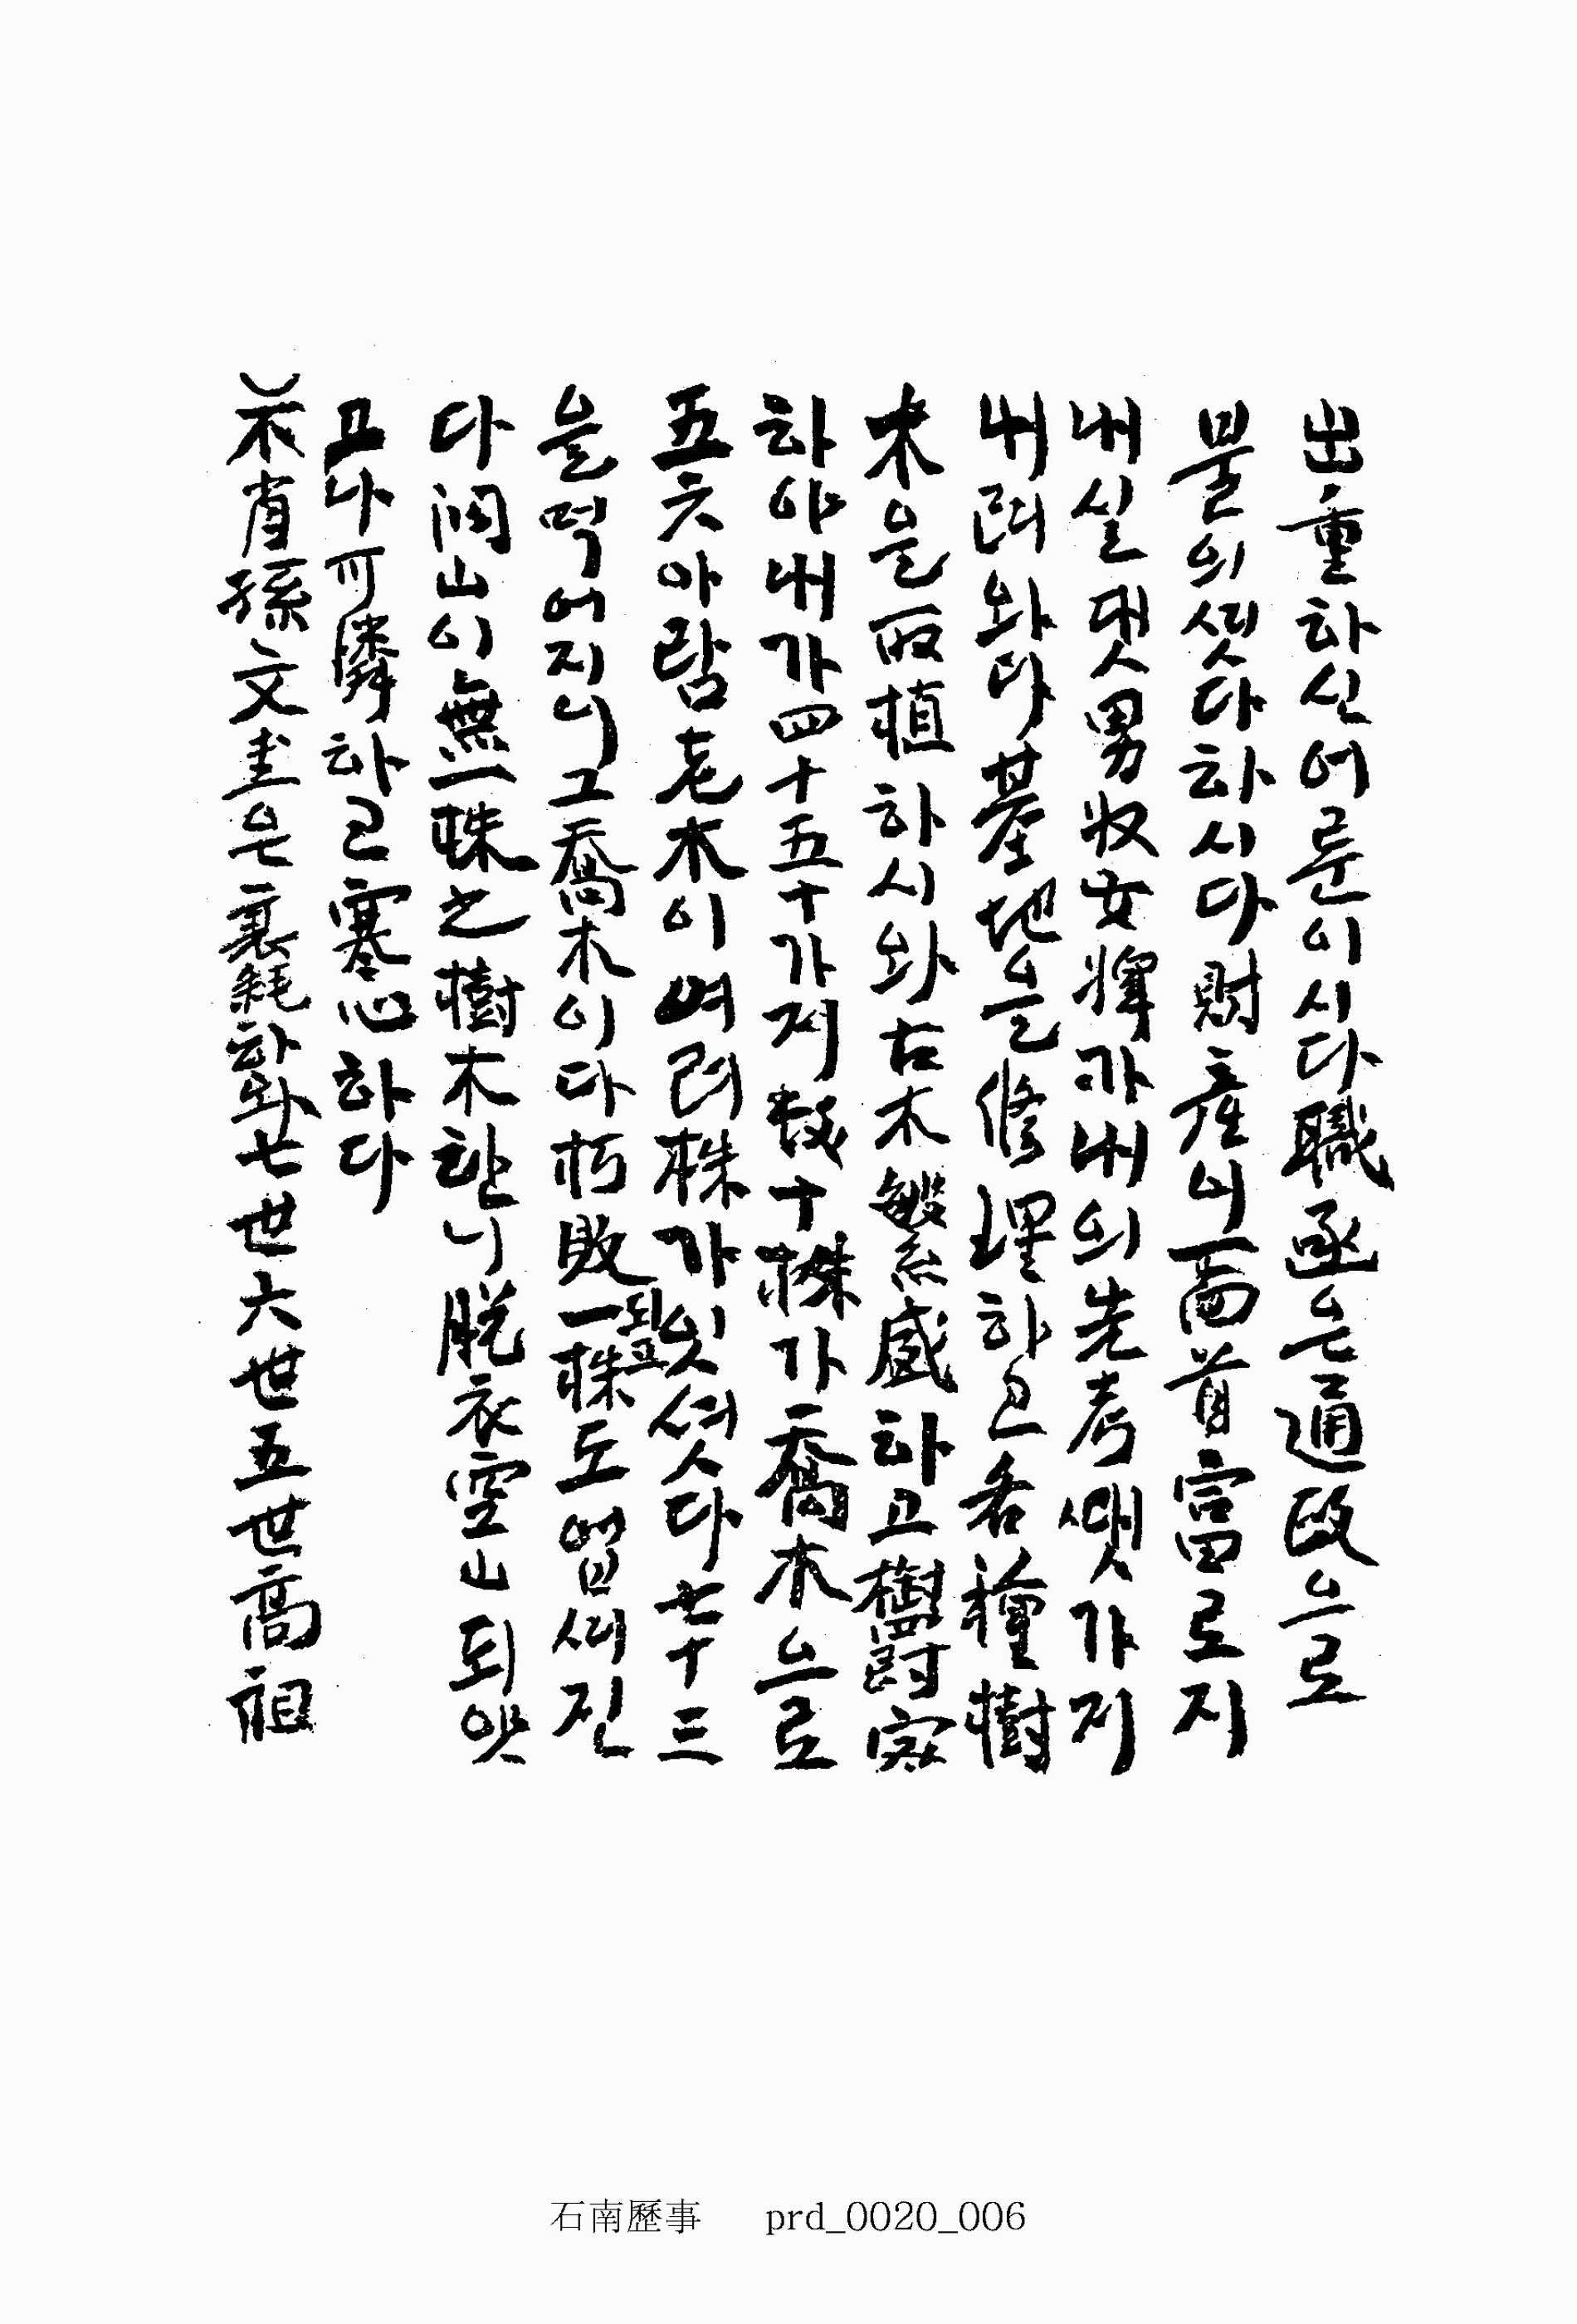 出重하신어룬이시다職函는通政으로
몰의셧다하시다財産니一面首富로지
내실뎃男奴女婢가내의先考땟가지
내려와다基地을修理하고各種樹
木을取植하시와古木繁盛하고樹欝密
하야내가四十五十가지數十株가喬木으로
五六아람老木이여러株가잇섯다七十三
을먹어지니그喬木이다朽敗되고一株도업써진
다闊山이無一株之樹木한니脫衣空山되얏
고나可憐하고寒心하다
不肖孫文圭은衰耗하와七世六世五世高祖
石南歷事 prd_0020_006